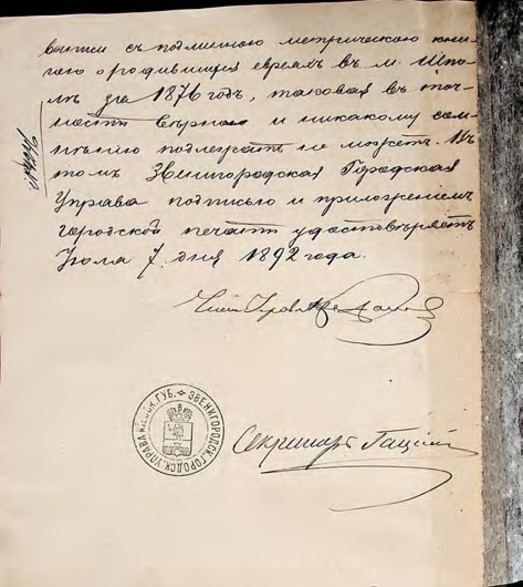 выписи съ подлинною метрическою кни-
гою о родившихся евреяхъ въ м. Шпо-
лѣ за 1876 годъ, таковая въ точ-
ности вѣрна и никакому сом-
нѣнію подлежать не можетъ. Въ
томъ Звенигородская Городская
Управа подписью и приложеніемъ
городской печати удостовѣряетъ
Іюля 7 дня 1892 года.
Членъ Управы
ЗВЕНИГОРОДСК. ГОРОДСК. УПРАВА КІЕВСК. ГУБ.
Секретарь